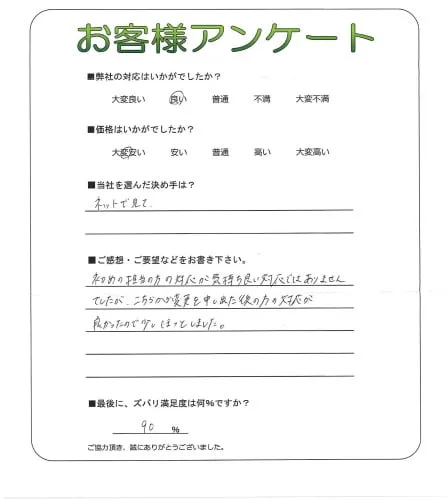 お客様アンケート
■弊社の対応はいかがでしたか？
大変良い 良い 普通 不満 大変不満
■価格はいかがでしたか？
大変安い 安い 普通 高い 大変高い
■当社を選んだ決め手は？
ネットで見て、
■ご感想・ご要望などをお書き下さい。
初めの担当の方の対応が気持ち良い対応ではありません
でしたが、こちらが変更を申し出た後の方の対応が
良かったので少しほっとしました。
■最後に、ズバリ満足度は何%ですか？
90 %
ご協力頂き、誠にありがとうございました。